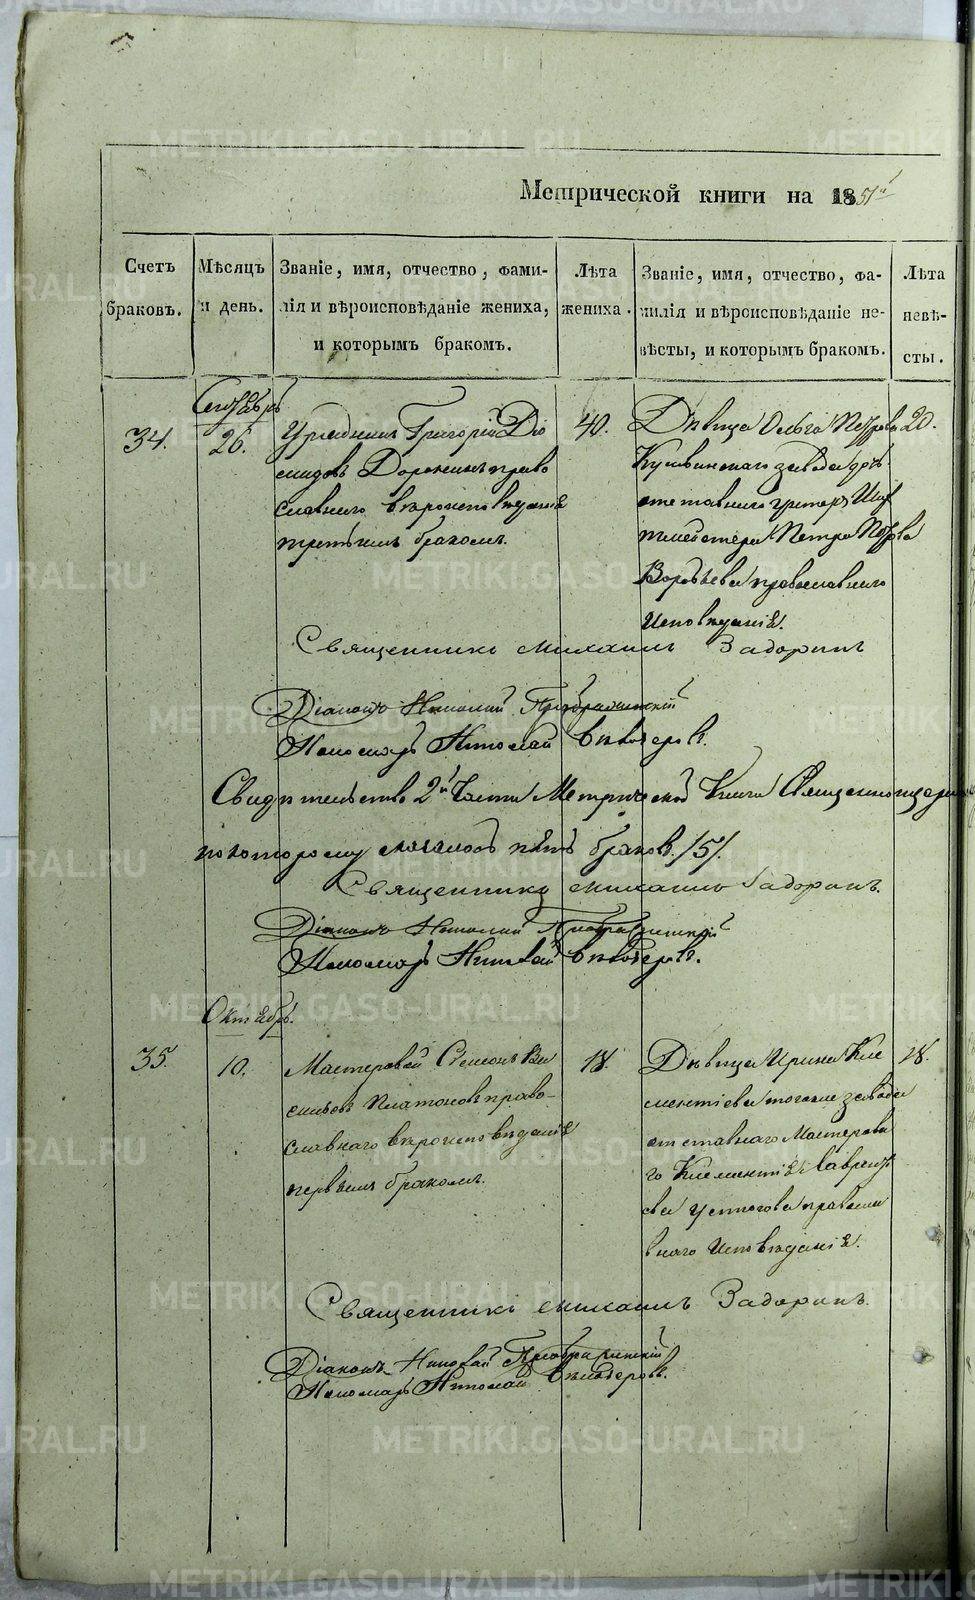 METRIKI.GASO-URAL.RU
Метрической книги на 1851й
Счетъ браковъ.
Мѣсяцъ и день.
Званіе, имя, отчество, фами-
лія и вѣроисповѣданіе жениха,
и которымъ бракомъ.
Лѣта
жениха.
Званіе, имя, отчество, фа-
милія и вѣроисповѣданіе не-
вѣсты, и которымъ бракомъ.
Лѣта
невѣ-
сты.
34.
Сентябрь
26.
Урядникъ Григорій Діо
мидовъ Доронинъ право
славнаго вѣроисповѣданія
третьимъ бракомъ.
40.
Дѣвица Ольга Петрова
Кушвинскаго завода
отставнаго Ших
тмейстера Петра Петрова
Воробьева православнаго
исповѣданія.
20.
Священникъ Михаилъ Задоринъ
Діаконъ Николай Преображенскій
Пономарь Николай
Свидѣтельство 2й Части Метрической Книги Священноцеркв
по которому началось пять браковъ /5/.
Священникъ Михаилъ Задоринъ.
Діаконъ Николай Преображенскій
Пономарь Николай
Октябрь.
35.
10.
Мастеровой Семенъ Ва
сильевъ Платоновъ право-
славнаго вѣроисповѣданія
первымъ бракомъ.
18.
Дѣвица Ирина Кле
ментіева тогоже завода
отставнаго Мастерова
го Клементія Лаврентье
ва Устюгова правосла
внаго исповѣданія.
18.
Священникъ Михаилъ Задоринъ.
Діаконъ Николай Преображенскій
Пономарь Николай